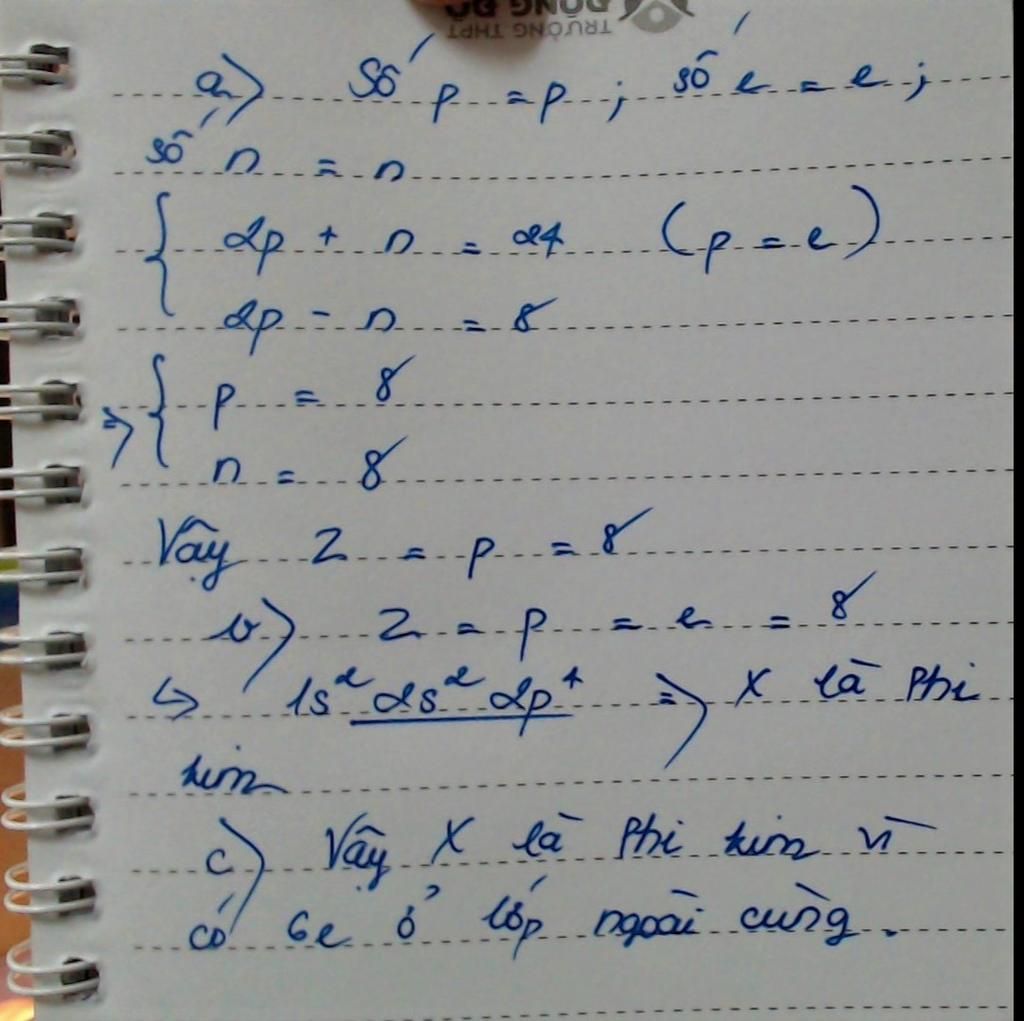 ĐÔNG ĐÔ
TRƯỜNG THPT
a) Số p = p ; số e = e ;
số n = n
{ 2p + n = 24 (p = e)
2p - n = 8
=> { p = 8
n = 8
Vậy Z = p = 8
b) Z = p = e = 8
↳ 1s² 2s² 2p⁴ => X là phi
kim
c) Vậy X là phi kim vì
có 6e ở lớp ngoài cùng.